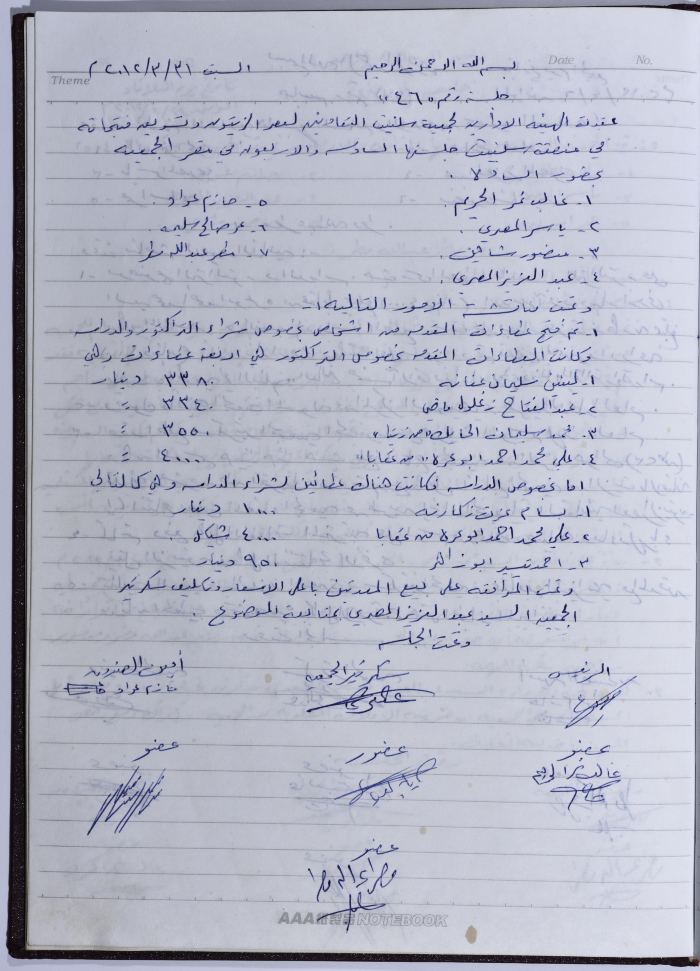 No.
Date.
Theme
بسم الله الرحمن الرحيم
السبت ٢٠١٢/٣/٣١
جلسة رقم "٤٦"
عقدت الهيئة الادارية لجمعية سلفيت التعاونية لعصر الزيتون وتسويق منتجاته
في منطقة سلفيت جلستها السادسة والاربعون في مقر الجمعية
بحضور السادة
١- غالب نمر الحريم.
٥- حازم عواد.
٢- ياسر المصري.
٦- عمر صالح سليمه.
٣- منصور شاهين.
٧- مطر عبدالله مطر
٤- عبد العزيز المصري.
وتمت مناقشة الامور التالية :-
١- تم فتح عطاءات المقدمه من اشخاص بخصوص شراء التراكتور والدراسه
وكانت العطاءات المقدمه بخصوص التراكتور هي اربعة عطاءات وهي
١- ليث سليمان عفانه ٣٣٨٠ دينار
٢- عبد الفتاح زغلول ماضي ٣٣٤٠ =
٣- محمد سليمان الحايك "من زيتا" ٣٥٥٠ =
٤- علي محمد احمد ابوعره "من عقابا" ٤٠٠٠ =
اما بخصوص الدراسه فكانت هناك عطائين لشراء الدراسه وهي كالتالي
١- بسام عزت زكارنه ١٠٠٠ دينار
٢- علي محمد احمد ابوعره من عقابا ٤٠٠٠ شيكل
٣- احمد تيسير ابو ٩٥٠ دينار
وتمت الموافقه على بيع المعدتين باعلى الاسعار وتكليف سكرتير
الجمعيه السيد عبد العزيز المصري بمتابعة الموضوع.
وتمت الجلسه
الرئيس
سكرتير الجمعيه
أمين الصندوق
حازم عواد
عضو
عضو
عضو
غالب نمر الحريم
عضو
AAA NOTEBOOK